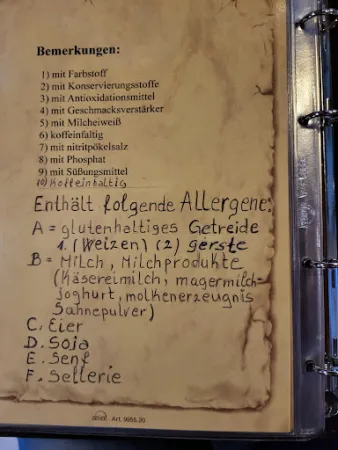 Bemerkungen:
1) mit Farbstoff
2) mit Konservierungsstoffe
3) mit Antioxidationsmittel
4) mit Geschmacksverstärker
5) mit Milcheiweiß
6) koffeinfaltig
7) mit nitritpökelsalz
8) mit Phosphat
9) mit Süßungsmittel
10) Koffeinhaltig
Enthält folgende Allergene:
A = glutenhaltiges Getreide
1. (Weizen) (2) gerste
B = Milch, Milchprodukte
(Käsereimilch, magermilch-
joghurt, molkenerzeugnis
Sahnepulver)
C. Eier
D. Soja
E. Senf
F. Sellerie
Art. 9855.20